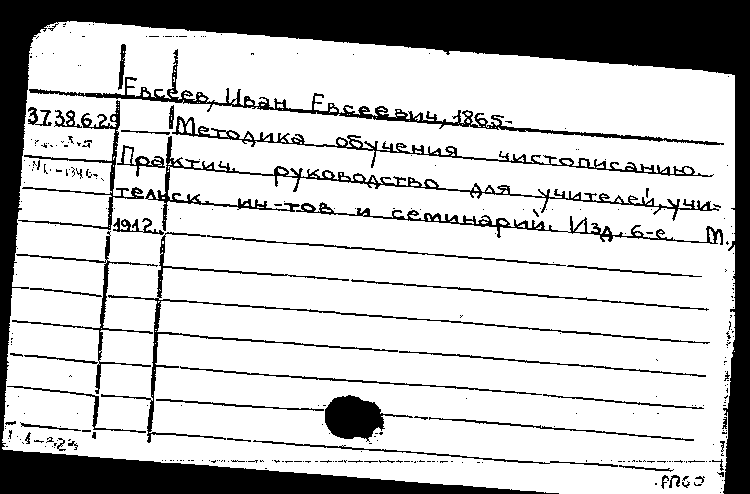 Евсеев, Иван Евсеевич, 1865-
37.38.6.29
Методика обучения чистописанию.
Практич. руководство для учителей, учи-
тельск. ин-тов и семинарий. Изд. 6-е. М.,
1912.